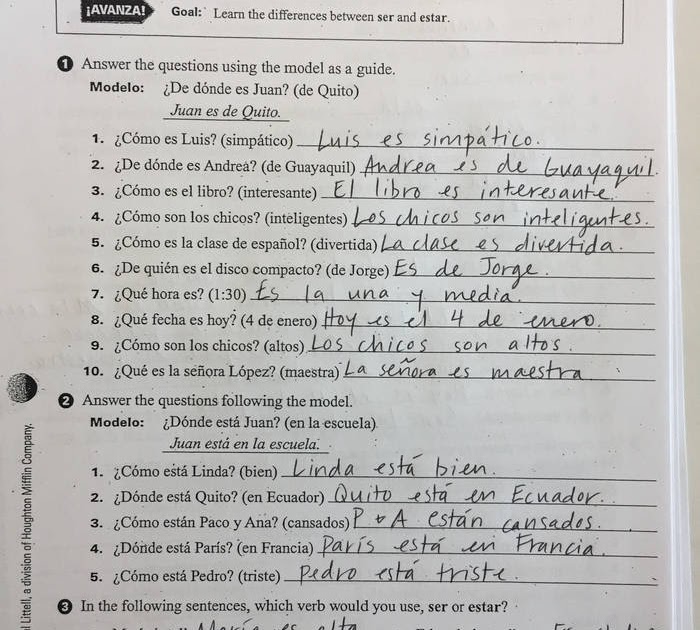 ¡AVANZA! Goal: Learn the differences between ser and estar.
1 Answer the questions using the model as a guide.
Modelo: ¿De dónde es Juan? (de Quito)
Juan es de Quito.
1. ¿Cómo es Luis? (simpático) Luis es simpático.
2. ¿De dónde es Andrea? (de Guayaquil) Andrea es de Guayaquil.
3. ¿Cómo es el libro? (interesante) El libro es interesante.
4. ¿Cómo son los chicos? (inteligentes) Los chicos son inteligentes.
5. ¿Cómo es la clase de español? (divertida) La clase es divertida.
6. ¿De quién es el disco compacto? (de Jorge) Es de Jorge.
7. ¿Qué hora es? (1:30) Es la una y media.
8. ¿Qué fecha es hoy? (4 de enero) Hoy es el 4 de enero.
9. ¿Cómo son los chicos? (altos) Los chicos son altos.
10. ¿Qué es la señora López? (maestra) La señora es maestra
2 Answer the questions following the model.
Modelo: ¿Dónde está Juan? (en la escuela)
Juan está en la escuela.
1. ¿Cómo está Linda? (bien) Linda está bien.
2. ¿Dónde está Quito? (en Ecuador) Quito está en Ecuador.
3. ¿Cómo están Paco y Ana? (cansados) P + A están cansados.
4. ¿Dónde está París? (en Francia) París está en Francia.
5. ¿Cómo está Pedro? (triste) Pedro está triste.
3 In the following sentences, which verb would you use, ser or estar?
María es alta
Littell, a division of Houghton Mifflin Company.